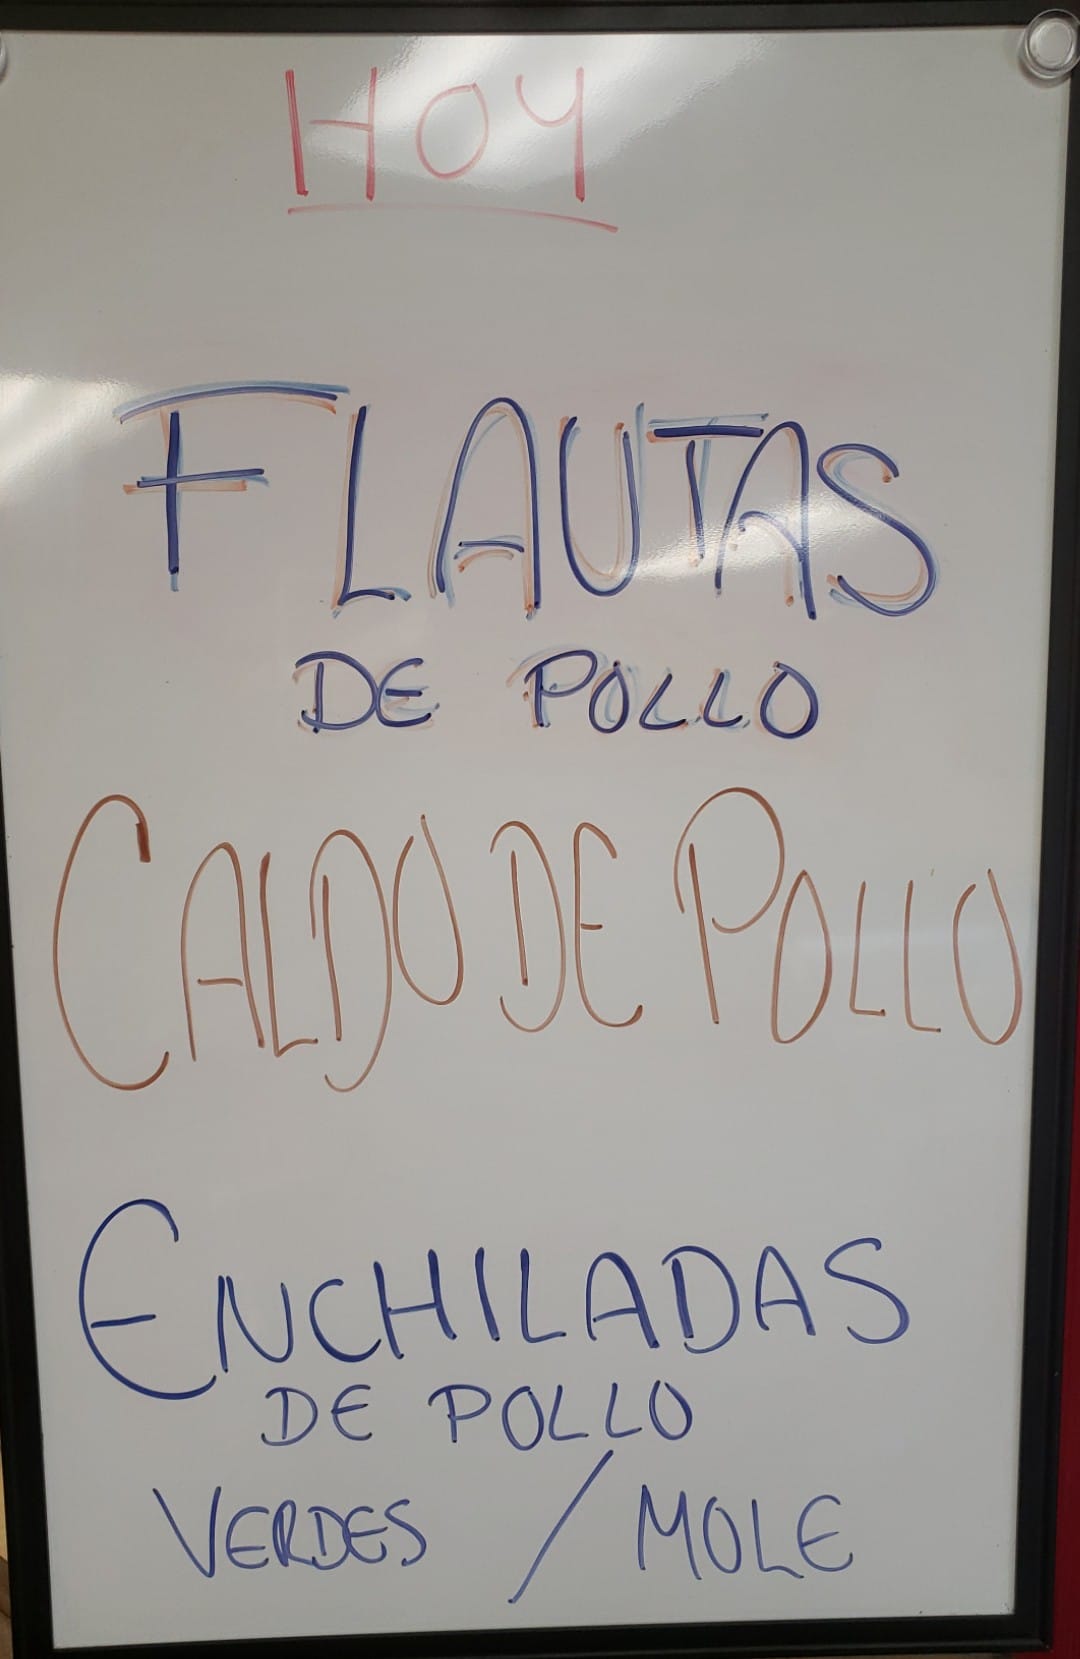 HOY
FLAUTAS
DE POLLO
CALDO DE POLLO
ENCHILADAS
DE POLLO
VERDES / MOLE